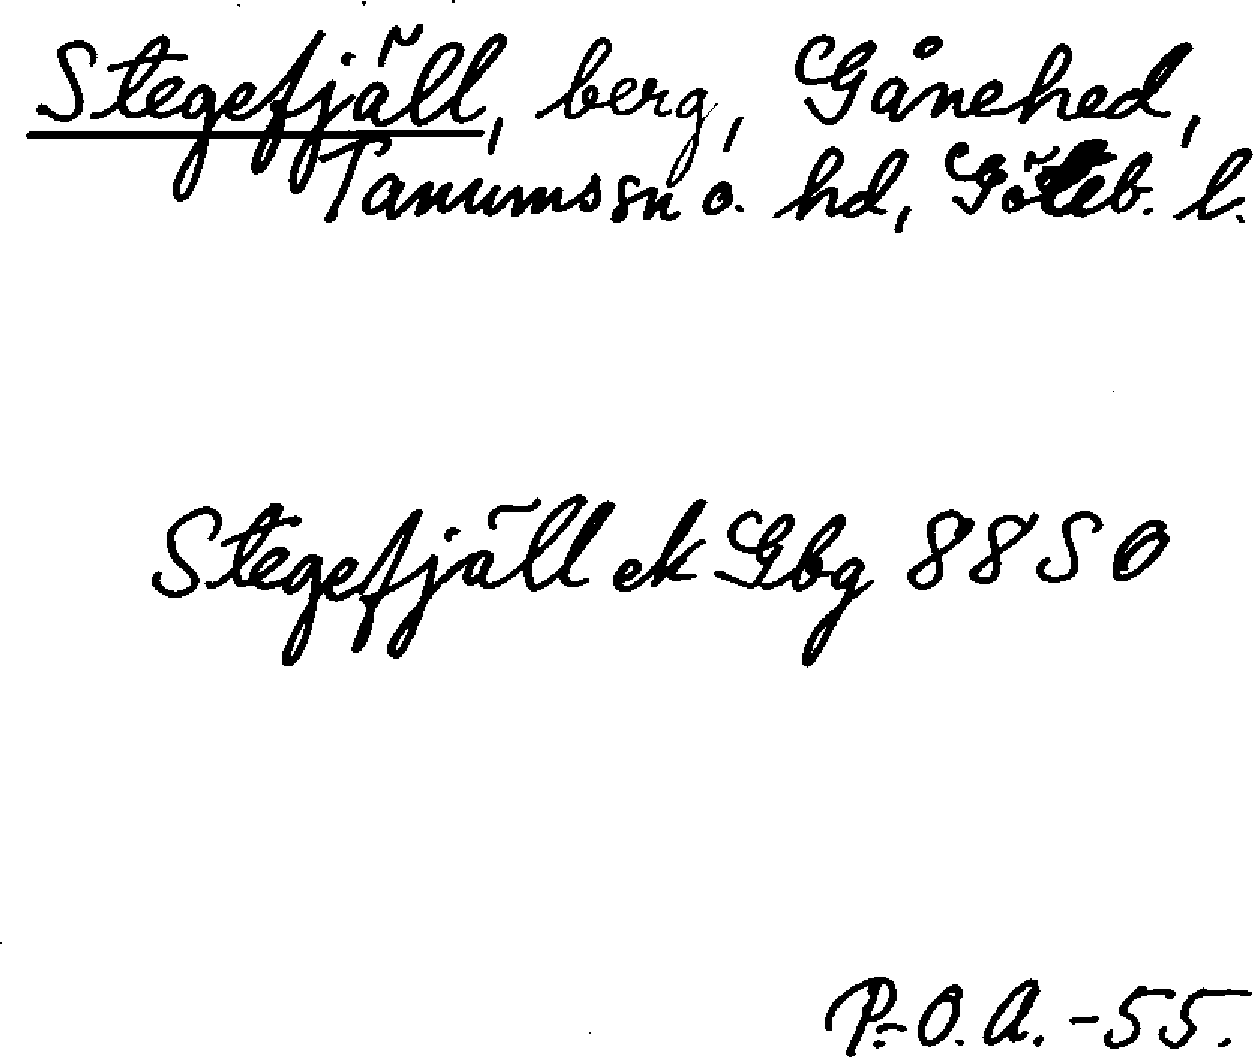 Stegefjäll, berg, Gånehed,
Tanums sn o. hd, Göteb. l.
Stegefjäll ek Gbg 88 SO
P.-O. A. -55.